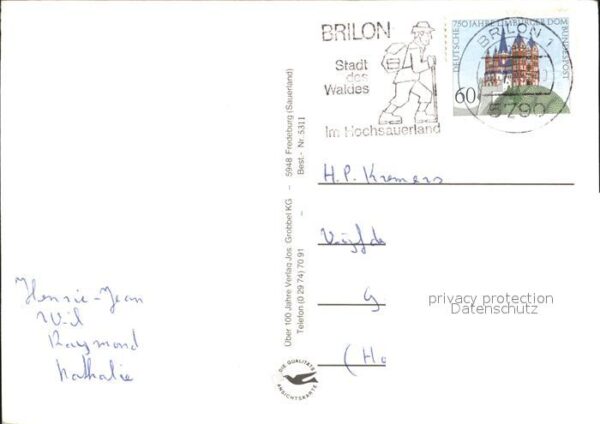 BRILON
Stadt
des
Waldes
Im Hochsauerland
DEUTSCHE BUNDESPOST
750 JAHRE LIMBURGER DOM
60
BRILON 1
5790
H.P. Kremers
G
(Ho
privacy protection
Datenschutz
Über 100 Jahre Verlag Jos. Grobbel KG – 5948 Fredeburg (Sauerland)
Telefon (0 29 74) 70 91 – Best.- Nr. 5311
DIE QUALITÄTS
ANSICHTSKARTE
Henrie-Jean
Wil
Raymond
Nathalie